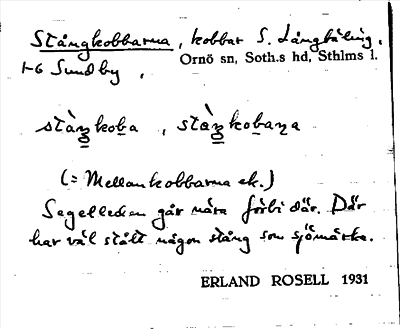 Stångkobbarna, kobbar S. Långbäling.
Ornö sn, Soth.s hd, Sthlms l.
1-6 Sundby,
stàŋkoba, stàŋkobaṇa
(= Mellankobbarna ek.)
Segelleden går nära förbi där. Där
har väl stått någon stång som sjömärke.
ERLAND ROSELL 1931